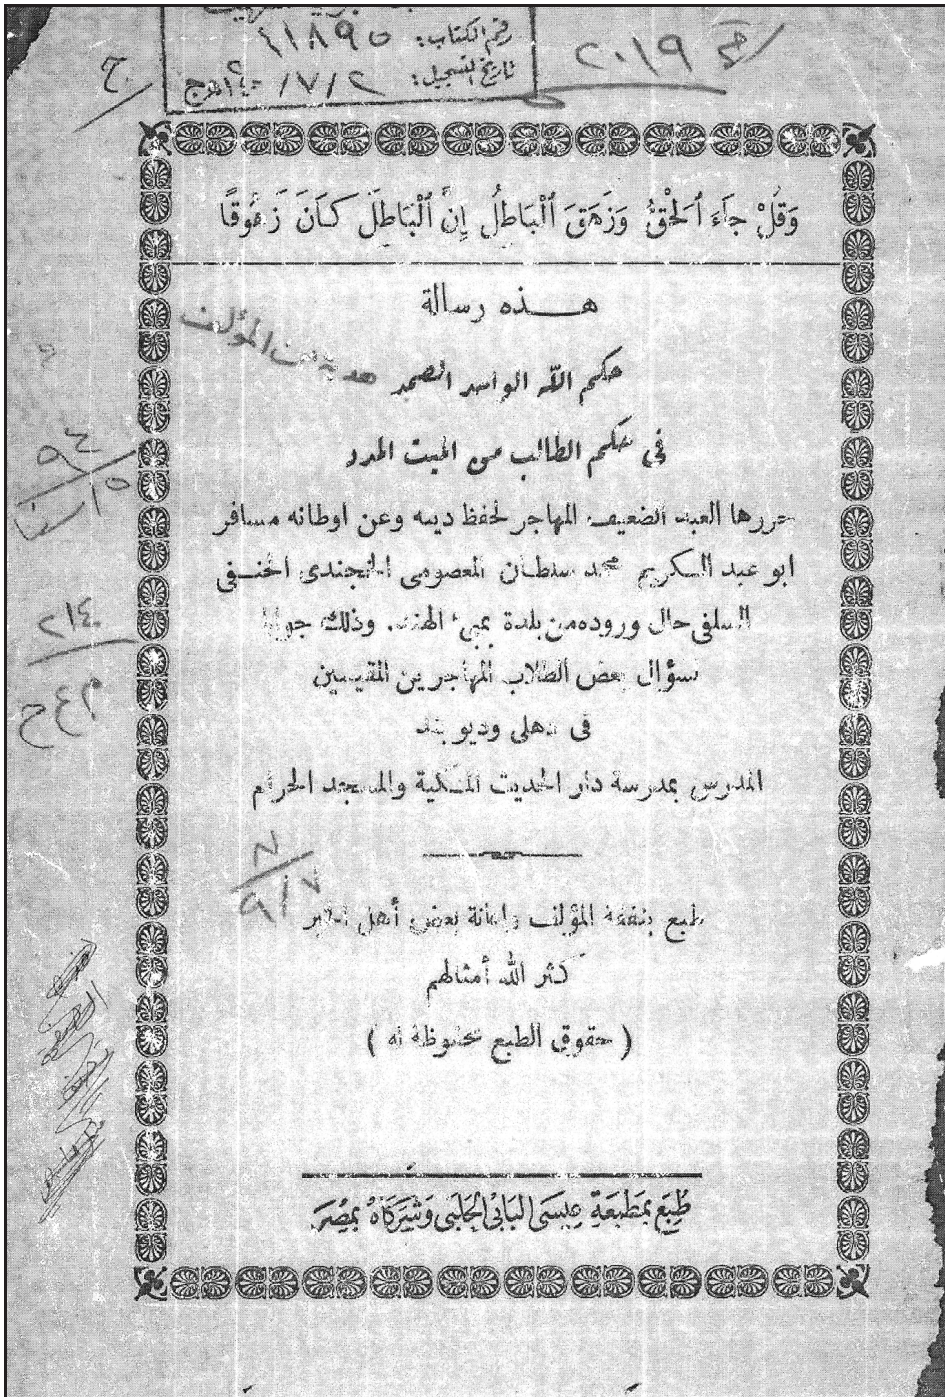 رقم الكتاب: ١١٨٩٥
تاريخ التسجيل: ٢/٧/
٢٠١٩
ح
وَقُلْ جَآءَ ٱلْحَقُّ وَزَهَقَ ٱلْبَاطِلُ إِنَّ ٱلْبَاطِلَ كَانَ زَهُوقًا
هذه رسالة
هدية من المؤلف
حكم الله الواحد الصمد
في حكم الطالب من الميت المدد
حررها العبد الضعيف المهاجر لحفظ دينه وعن اوطانه مسافر
ابو عبد الكريم محمد سلطان المعصومى الخجندى الحنفى
السلفى حال وروده من بلدة بمبىء الهند. وذلك جوابا
سؤال بعض الطلاب المهاجرين المقيمين
فى دهلى وديوبند
المدرس بمدرسة دار الحديث المكية والمسجد الحرام
٢١٤
طبع بنفقة المؤلف واعانة بعض أهل الخير
كثر الله أمثالهم
( حقوق الطبع محفوظة له )
طُبِعَ بمَطبَعَةِ عِيسَى البَابِى الحَلَبى وَشُرَكَاهُ بمِصْرَ